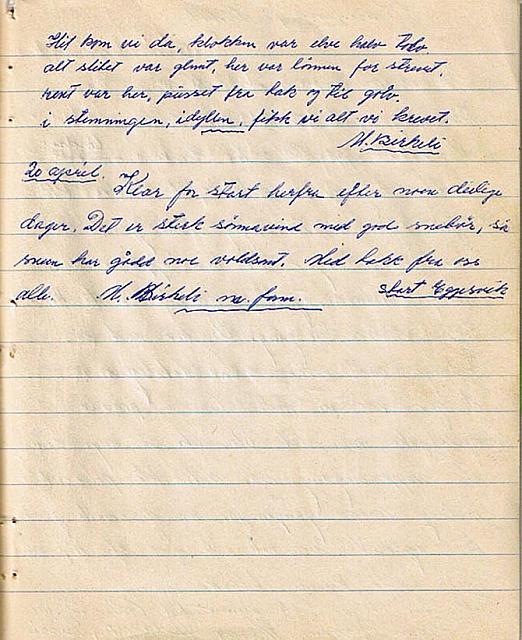 Hit kom vi da, klokken var elve halv tolv.
alt slitet var glemt, her var lönnen for strevet.
rent var her, pusset fra tak og til golv.
i stemningen, idyllen, fikk vi alt vi krevet.
M. Birkeli
20 april. Klar for start herfra efter noen deilige
dager. Det er sterk sönnavind med god snebör, så
sneen har gådd noe voldsomt. Med takk fra oss
alle. M. Birkeli m. fam. start Eggesvik